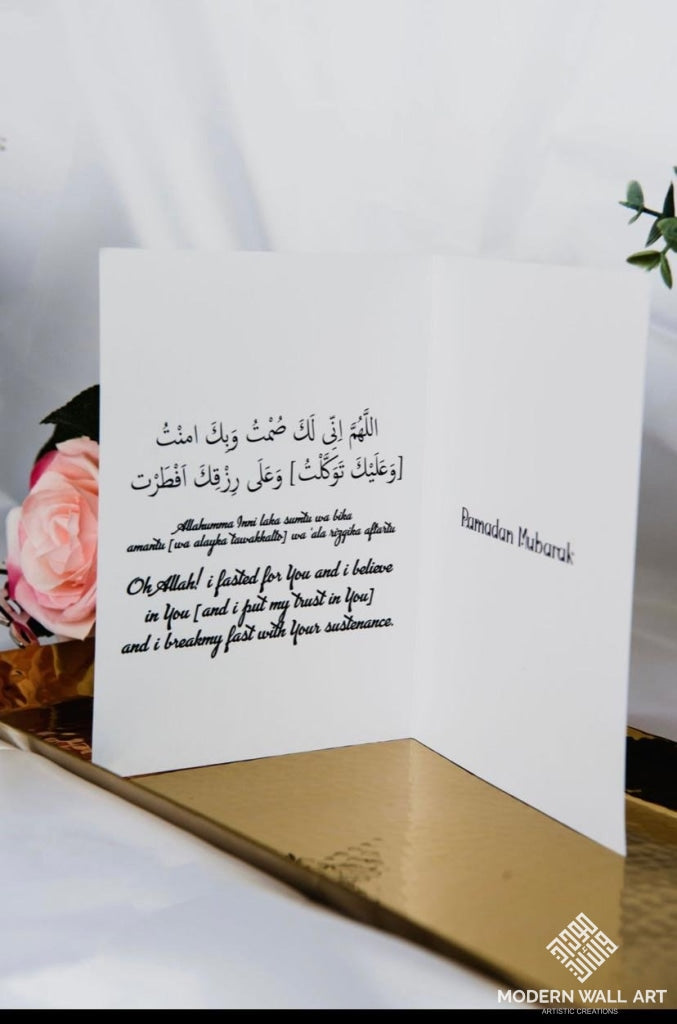 اللَّهُمَّ اِنِّى لَكَ صُمْتُ وَبِكَ امنْتُ
[وَعَلَيْكَ تَوَكَّلْتُ] وَعَلَى رِزْقِكَ اَفْطَرْت
Allahumma Inni laka sumtu wa bika
amantu [wa alayka tawakkalto] wa 'ala rizqika aftartu
Oh Allah! i fasted for You and i believe
in You [and i put my trust in You]
and i breakmy fast with Your sustenance.
Ramadan Mubarak
MODERN WALL ART
ARTISTIC CREATIONS